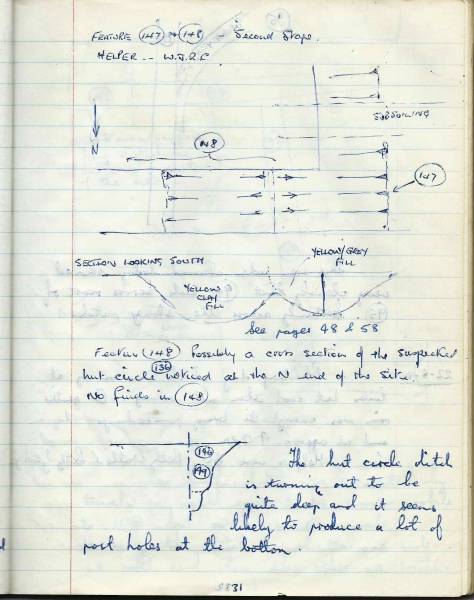 FEATURE 147 & 148 - Second Stage.
HELPER -- W.J.R.C
SUBSOILING
N
148
147
SECTION LOOKING SOUTH
YELLOW/GREY
FILL
YELLOW
CLAY
FILL
See pages 48 & 58
Feature 148 Possibly a cross section of the suspected
hut circle 136 noticed at the N end of the site
No finds in 148
The hut circle ditch
is turning out to be
quite deep and it seems
likely to produce a lot of
post holes at the bottom.
31